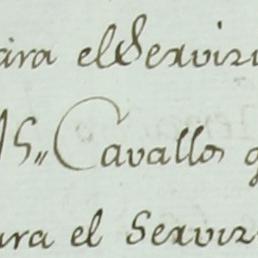 ara el Servizi
15,, Cavallos q
ara el Serviz